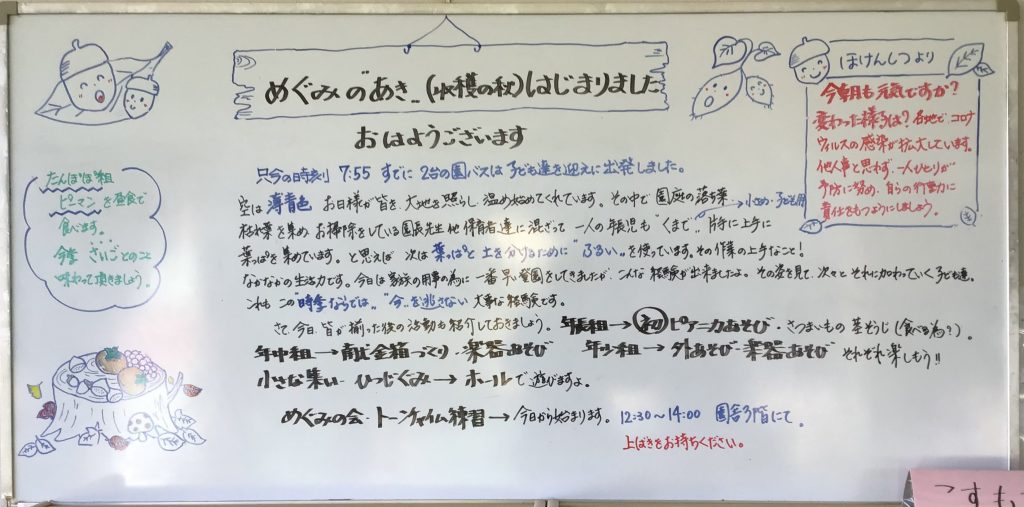 めぐみのあき (収穫の秋) はじまりました
おはようございます
只今の時刻 7:55 すでに 2台の園バスは子ども達を迎えに出発しました。
空は 薄青色 お日様が皆を、大地を照らし 温め始めてくれています。その中で 園庭の落ち葉
→小さめ・子ども用
枯れ葉を集め お掃除をしている園長先生他 保育者達に混ざって 一人の年長児も"くまで" 片手に上手に
葉っぱを集めています。と思えば 次は葉っぱと土を分けるために"ふるい"を使っています。その作業の上手なこと!
なかなかの生活力です。今日は家族の用事の為に 一番早い登園をしてきましたが、こんな経験が出来ましたよ。その姿を見て、次々と それに加わっていく子ども達。
これも この"時季ならでは" "今"を逃さない 大事な経験です。
さて、今日、皆が揃った後の活動も紹介しておきましょう。年長組→初ピアニカあそび・さつまいもの 茎そうじ(食べる為?)。
年中組→献金箱づくり・楽器あそび 年少組→外あそび・楽器あそび それぞれ楽しもう!!
小さな集い ひつじぐみ→ホールで遊びますよ。
めぐみの会・トーンチャイム練習→今日から始まります。12:30〜14:00 園舎3階にて。
上ばきをお持ちください。
たんぽぽ組
ピーマンを昼食で
食べます。
今季 さいごとのこと
味わって頂きましょう。
ほけんしつより
今朝も元気ですか?
変わった様子は? 各地でコロナ
ウィルスの感染が拡大しています。
他人事と思わず、一人ひとりが
予防に努め、自らの行動に
責任をもつようにしましょう。